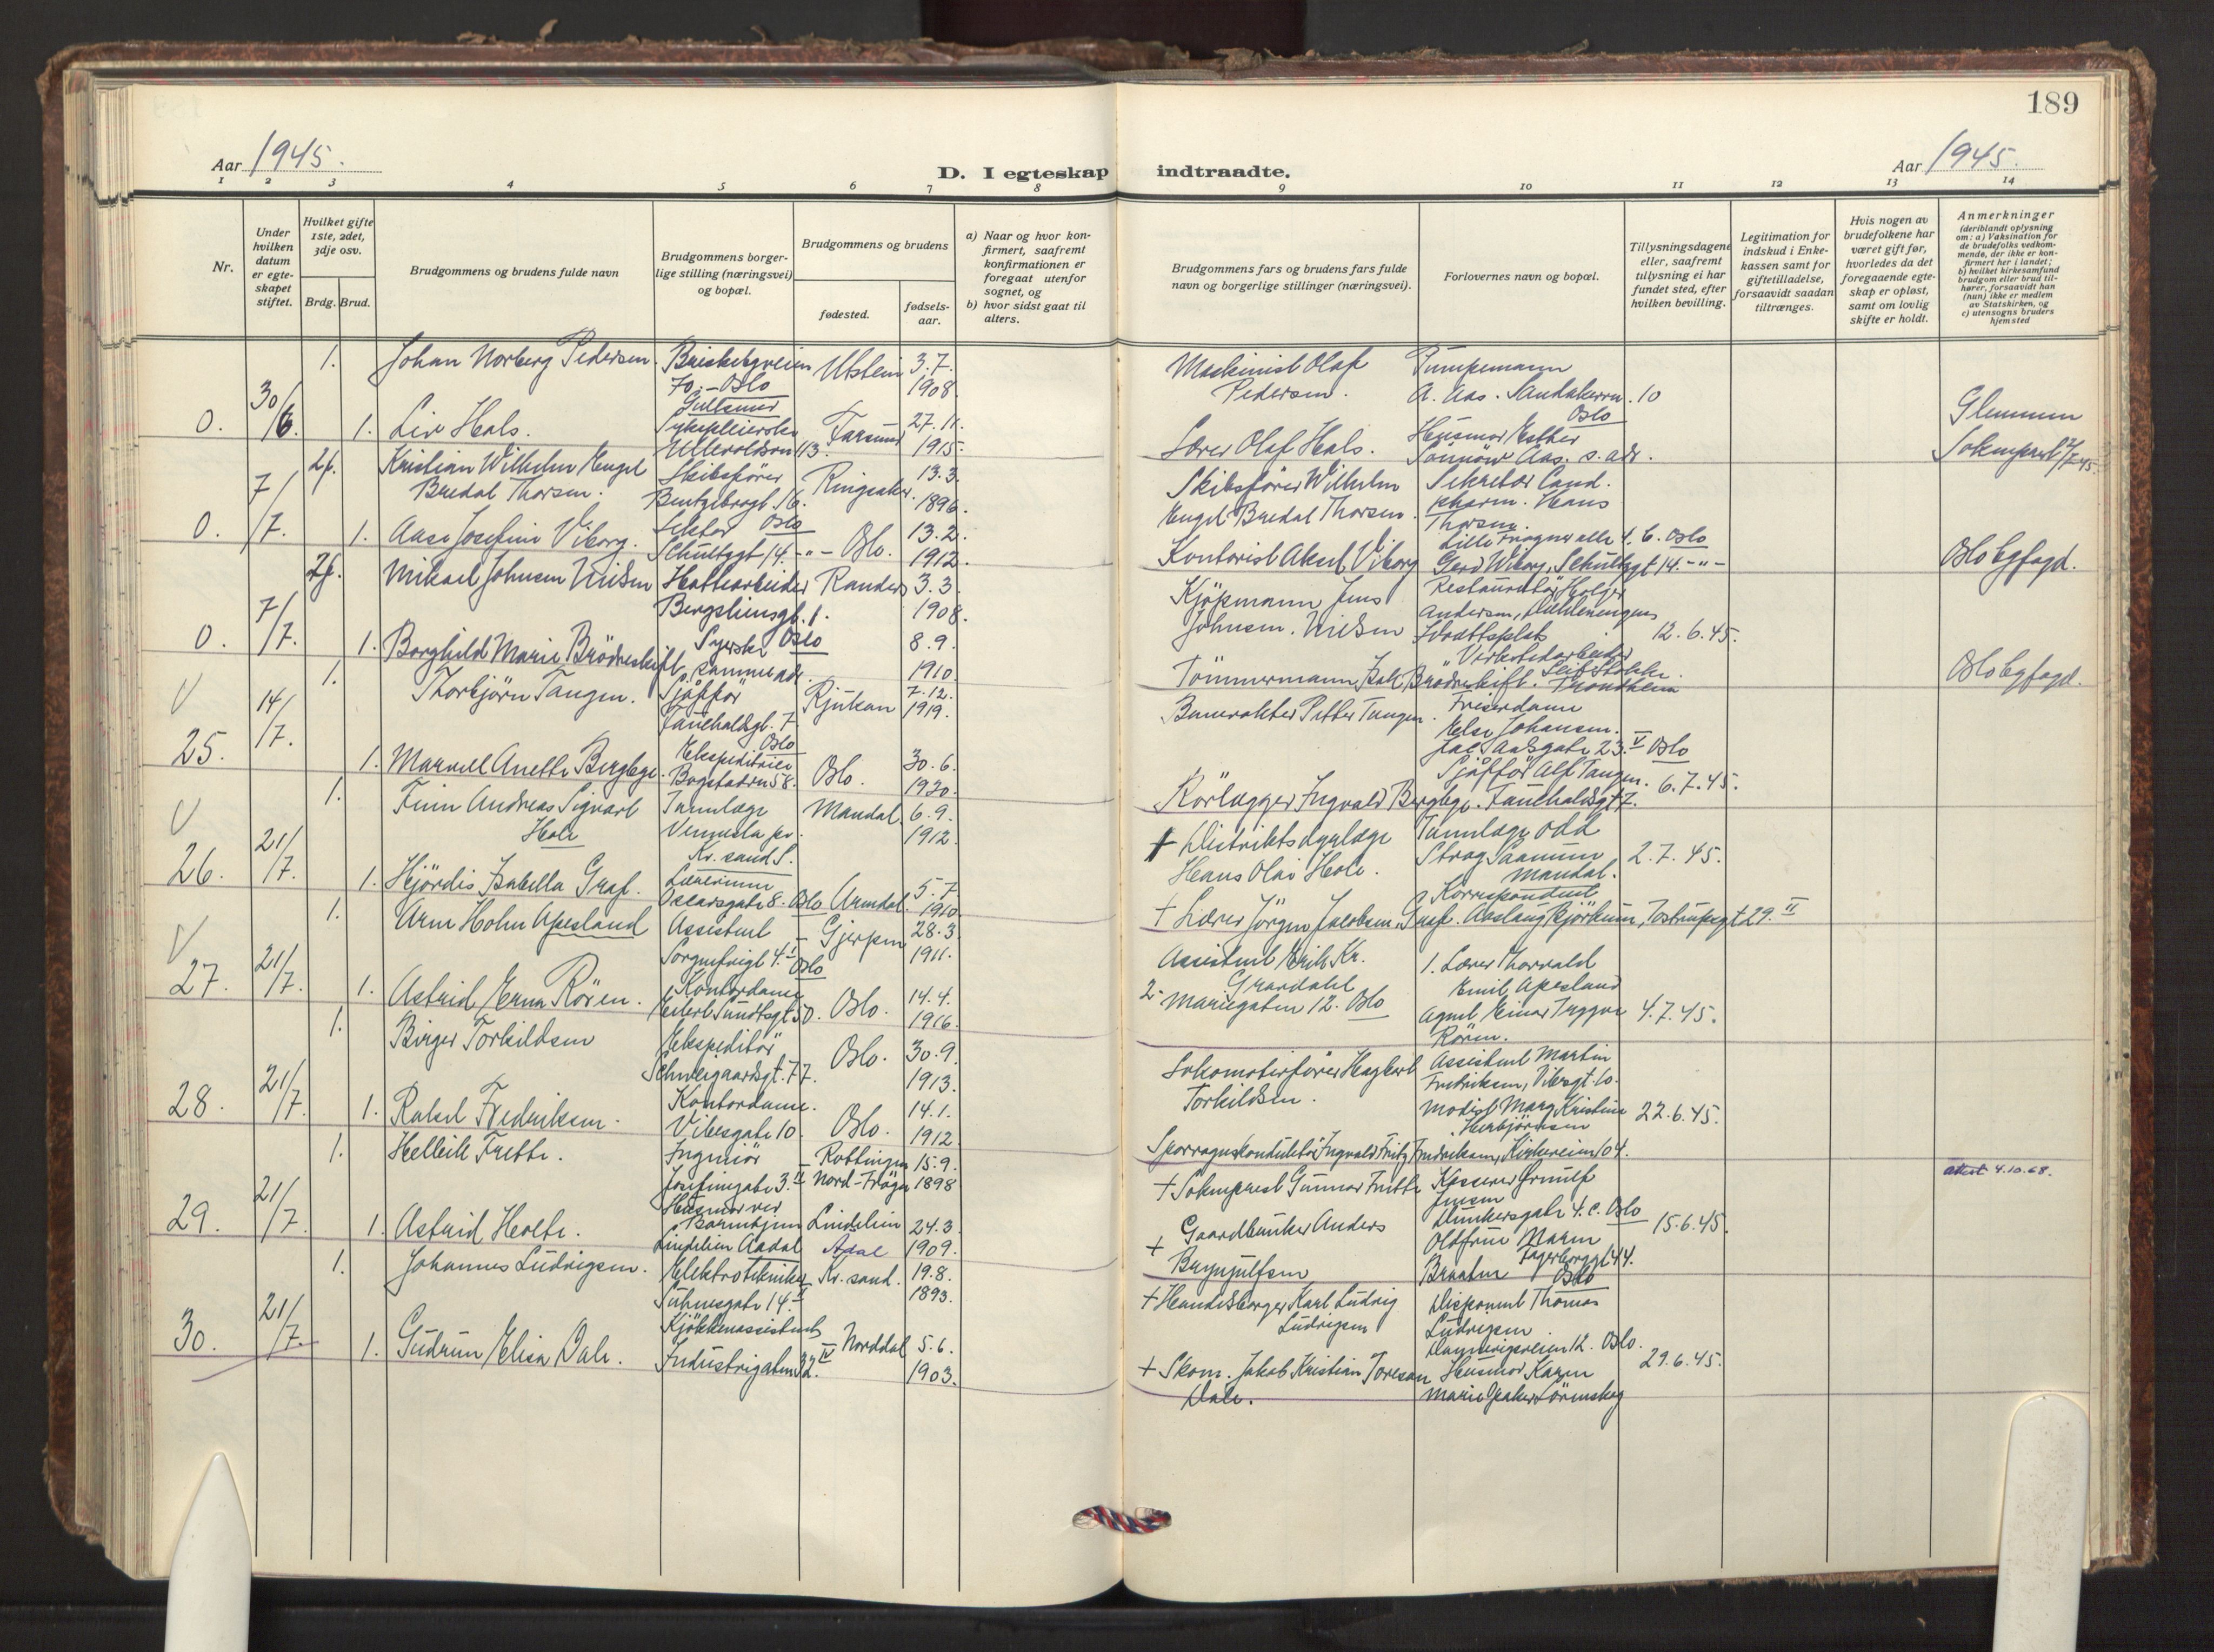 189
Aar 1945.
D. I egteskap indtraadte.
Aar 1945.
1 2 3 4 5 6 7 8 9 10 11 12 13 14
Nr.
Under hvilken datum er egteskapet stiftet.
Hvilket gifte 1ste, 2det, 3dje osv.
Brdg. Brud.
Brudgommens og brudens fulde navn
Brudgommens borgerlige stilling (næringsvei) og bopæl.
Brudgommens og brudens
fødested.
fødselsaar.
a) Naar og hvor konfirmert, saafremt konfirmationen er foregaat utenfor sognet, og
b) hvor sidst gaat til alters.
Brudgommens fars og brudens fars fulde navn og borgerlige stillinger (næringsvei).
Forlovernes navn og bopæl.
Tillysningsdagene eller, saafremt tillysning ei har fundet sted, efter hvilken bevilling.
Legitimation for indskud i Enkekassen samt for giftetilladelse, forsaavidt saadan tiltrænges.
Hvis nogen av brudefolkene har været gift før, hvorledes da det foregaaende egteskap er opløst, samt om lovlig skifte er holdt.
Anmerkninger
(deriblandt oplysning om: a) Vaksination for de brudefolks vedkommende, der ikke er konfirmert her i landet;
b) hvilket kirkesamfund brudgom eller brud tilhører, forsaavidt han (hun) ikke er medlem av Statskirken, og
c) utensogns bruders hjemsted
0. 30/6.
1. Johan Norberg Pedersen. 70. - Oslo Utstein 3.7. 1908
Maskinist Olaf Pedersen. Pumpemann A. Aas. Sandakervn. 10 Oslo
1. Liv Hals. Sykepleierske Farsund 27.11. 1915.
Lærer Olaf Hals. Husmor Esther Aas. s. adr.
Glemmen Sokneprest
0. 7/7.
2f. Kristian Wilhelm Engel Bredal Thorsen. Skibsfører Bentzebrogt. 16. Oslo Ringsaker. 13.3. 1896.
Skibsfører Wilhelm Engel Bredal Thorsen. Sekretær Cand. pharm. Hans Thorsen. Lille Frogner alle 4. b. Oslo
1. Aase Josefine Viborg. Lektor Schultzgt 14. -"- Oslo. 13.2. 1912.
Kontorist Aksel Viborg Gerd Wiborg, Schultzgt 14. -"-
Oslo byfogd.
0. 7/7.
2f. Mikael Johnsen Nielsen Hattearbeider Bergsliensgt. 1. Oslo Randers 3.3. 1908.
Kjøpmann Jens Johnsen Nielsen Restauratør Holger Andersen, Idrættsplads 12.6.45.
1. Borghild Marie Brødreskift. Syerske samme adr. 8.9. 1910
Tømmermann Isak Brødreskift. Virkstedarbeider Leif Trondheim
Oslo byfogd.
V 25. 14/7.
1. Thorbjørn Tangen. Sjåffør Fauchaldsgt. 7 Oslo Rjukan 7.12. 1919.
Banevokter Petter Tangen. Frisørdame Else Johansen. Jac. Aalsgate 23. IV Oslo
1. Marvell Anette Bergbye. Ekspeditrice Bogstadvn 58. Oslo. 30.6. 1920.
Rørlægger Ingvald Bergbye. Sjåffør Alf Tangen. Fauchaldsgt 7. 6.7.45.
V 26. 21/7.
1. Finn Andreas Sigvart Hole Tannlæge Vennesla pr. Kr. sand S. Mandal. 6.9. 1912.
+ Distriktsdyrlæge Hans Olai Hole. Tannlæge Odd Strøg Saanum Mandal. 2.7.45.
1. Hjørdis Isabella Graf. Lærerinne Oscarsgate 8. Oslo Arendal. 5.7 1910
+ Lærer Jørgen Jacobsen Graf. Korrespondent Aaslaug Bjørkum, Tostrupsgt 29. II
V 27. 21/7.
1. Arne Holm Apesland Assistent Sorgenfrigt 4. I Oslo Gjerpen 28.3 1911.
Assistent Erik Kr. 1. Lærer Thorvald Emil Apesland
1. Astrid Erna Røren. Kontordame Eilert Sundtsgt 50. Oslo. 14.4. 1916.
2- Mariegaten 12. Oslo Agent Einar Yngvar Røren. 4.7.45.
28. 21/7.
1. Birger Torkildsen Ekspeditør Schweigaardsgt. 77. Oslo. 30.9. 1913.
Lokomotivfører Hagbart Torkildsen. Assistent Martin Fredriksen, Vibesgt. 10.
1. Rakel Fredriksen. Kontordame. Vibesgate 10. Oslo. 14.1. 1912
Sporvognskonduktør Ingvald Fritz Fredriksen, Modist Marg Kristine Herbjørnsen Kirkeveien 104. 22.6.45.
29. 21/7.
1. Helleik Frette. Ingeniør Josefinegate 3. II Nord-Frøya 15.9. 1898
+ Sokneprest Gunnar Frette Kasserer Jensen Munkersgate 4. c. Oslo
attest 4.10.68.
1. Astrid Holte. Husmor ved Barnehjem Lindelien Aadal Lindelien Ådal 24.3 1909.
+ Gaardbruker Anders Brynjulfsen Oldfrue Maren Braaten Fagerborggt 44. Oslo 15.6.45.
30. 21/7.
1. Johannes Ludvigsen. Elektrotekniker Suhmsgate 14. II Kr. sand. 19.8. 1893.
+ Handelsborger Karl Ludvig Ludvigsen Disponent Thomas Ludvigsen. 12. Oslo.
1. Gudrun Elisa Dale. Kjøkkenassistent Industrigaten 32. IV Norddal 5.6. 1903.
+ Skom. Jakob Kristian Toresen Dale. Husmor Karen Marie 29.6.45.